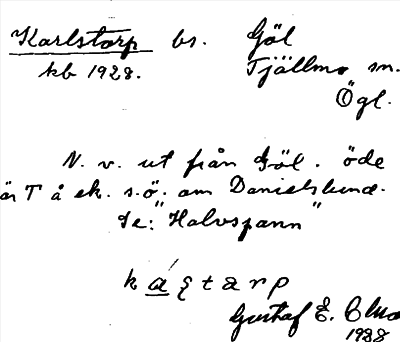 Karlstorp bs. Göl
kb 1928. Tjällmo sn.
Ögl.
N. v. ut från Göl. öde
är T å ek. s.ö. om Danielslund.
Se: "Halvspann"
Gustaf E.
1928